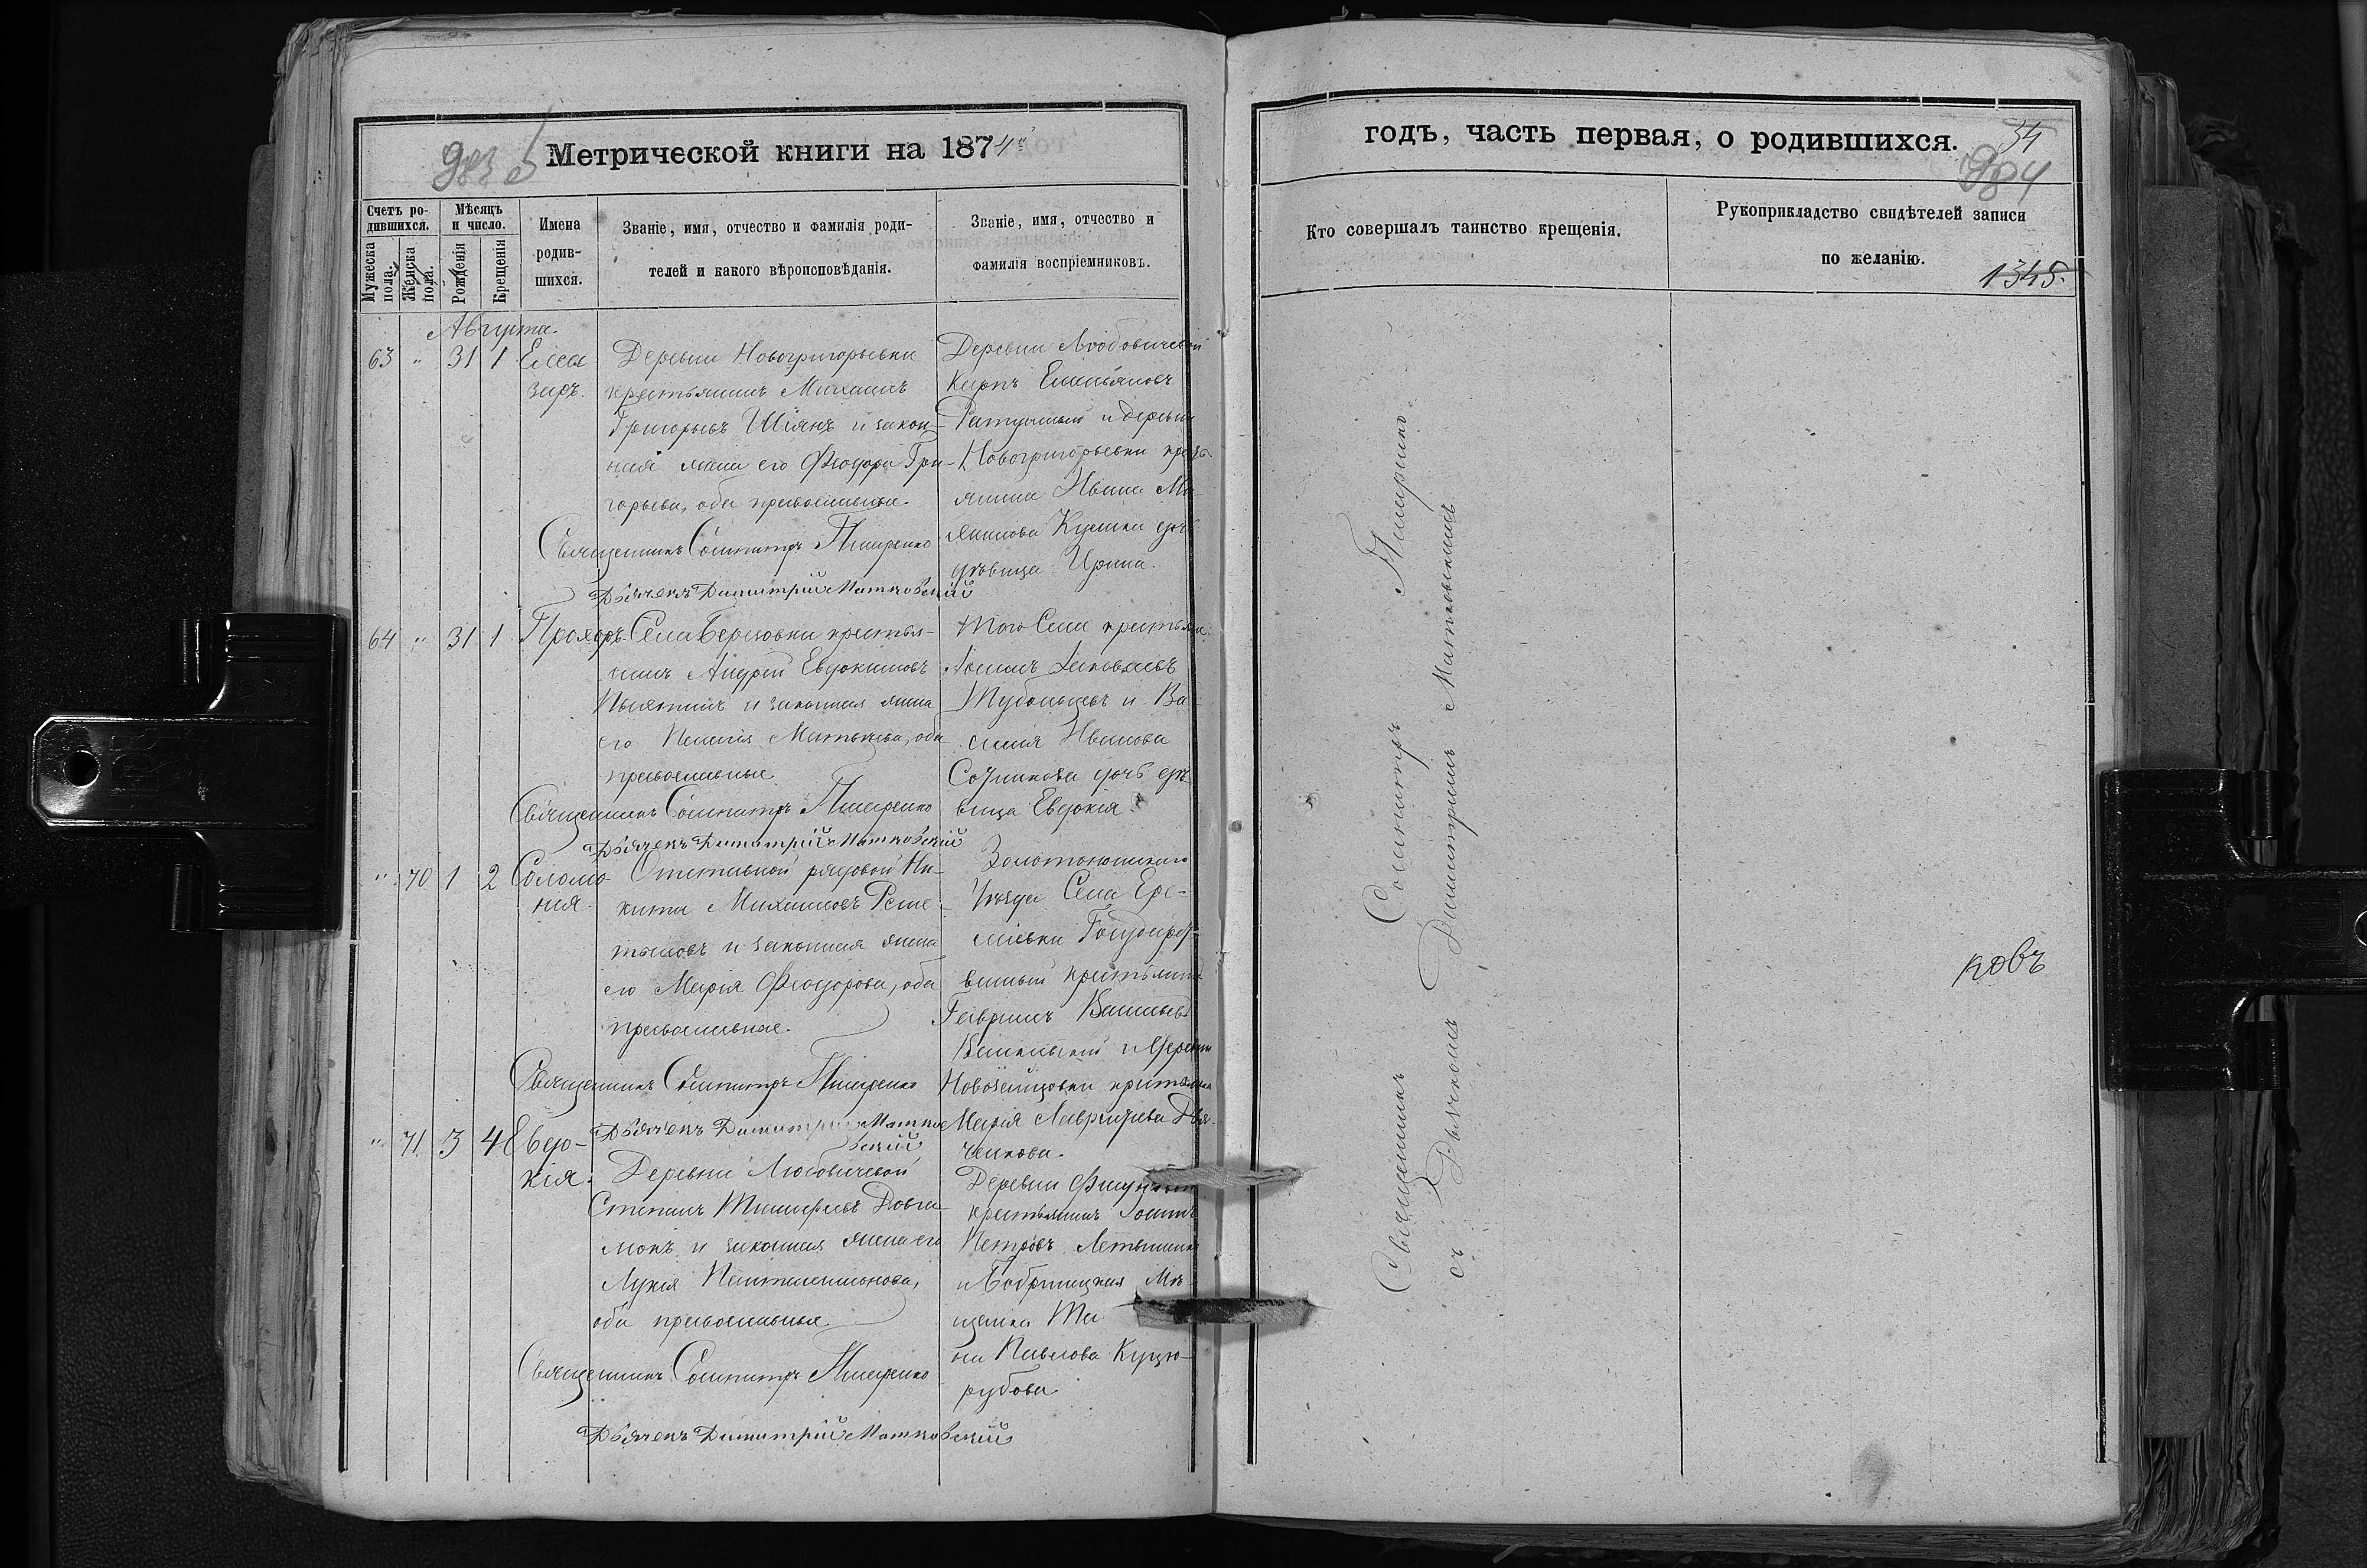 983 об
Метрической книги на 1874й
Счетъ ро-
дившихся.
Мужеска пола.
Женска пола.
Мѣсяцъ
и число.
Рожденія
Крещенія
Имена
родив-
шихся.
Званіе, имя, отчество и фамилія роди-
телей и какого вѣроисповѣданія.
Званіе, имя, отчество и
фамилія воспріемниковъ.
Августа.
63 " 31 1 Елеа
заръ.
Деревни Новогригорьевки
крестьянинъ Михаилъ
Григорьевъ Шіянъ и закон-
ная жена его Ѳеодора Гри-
горьева, оба православные.
Священникъ Созипатръ Писаренко
Дьячекъ Димитрій Матковскій
Деревни Любовичевой
Карпъ Емельяновъ
и деревни
Новогригорьевки крестья
янина Ивана
дочь
дѣвица Ирина.
64 " 31 1 Прохоръ.
Села Березовки крестья-
нинъ Андрей Евдокимовъ
и законная жена
его Пелагія Матвѣева, оба
православные
Священникъ Созипатръ Писаренко
Дьячекъ Димитрій Матковскій
Того Села крестьян:
Іосифъ Яковлевъ
и Ва-
силія Иванова
Сотникова дочь дѣ
вица Евдокія.
" 70 1 2 Соломо-
нія.
Отставной рядовой Ни-
кита Михаиловъ Реше-
тыловъ и законная жена
его Марія Ѳеодорова, оба
православные.
Священникъ Созипатръ Писаренко
Дьячекъ Димитрій Матко
вскій
Золотоношскаго
Уѣзда Села Ере-
міевки Государст-
венный крестьянинъ
Гавриилъ Васильевъ
и Деревни
крестьянка
Марія Дья-
ченкова.
" 71 3 4 Евдо-
кія.
Деревни Любовичевой
Степанъ Тимофеевъ Довга-
люкъ и законная жена его
Лукія Пантелеимонова,
оба православные.
Священникъ Созипатръ Писаренко
Дьячекъ Димитрій Матковскій
Деревни
крестьянинъ Іосифъ
Петровъ
и Бобринецкая Мѣ-
щанка Та
на Павлова Куцо-
рубова
годъ, часть первая, о родившихся.
34
984
Кто совершалъ таинство крещенія.
Рукоприкладство свидѣтелей записи
по желанію.
1345.
Священникъ Созипатръ Писаренко
съ Дьячкомъ Димитріемъ Матковскимъ
ковъ